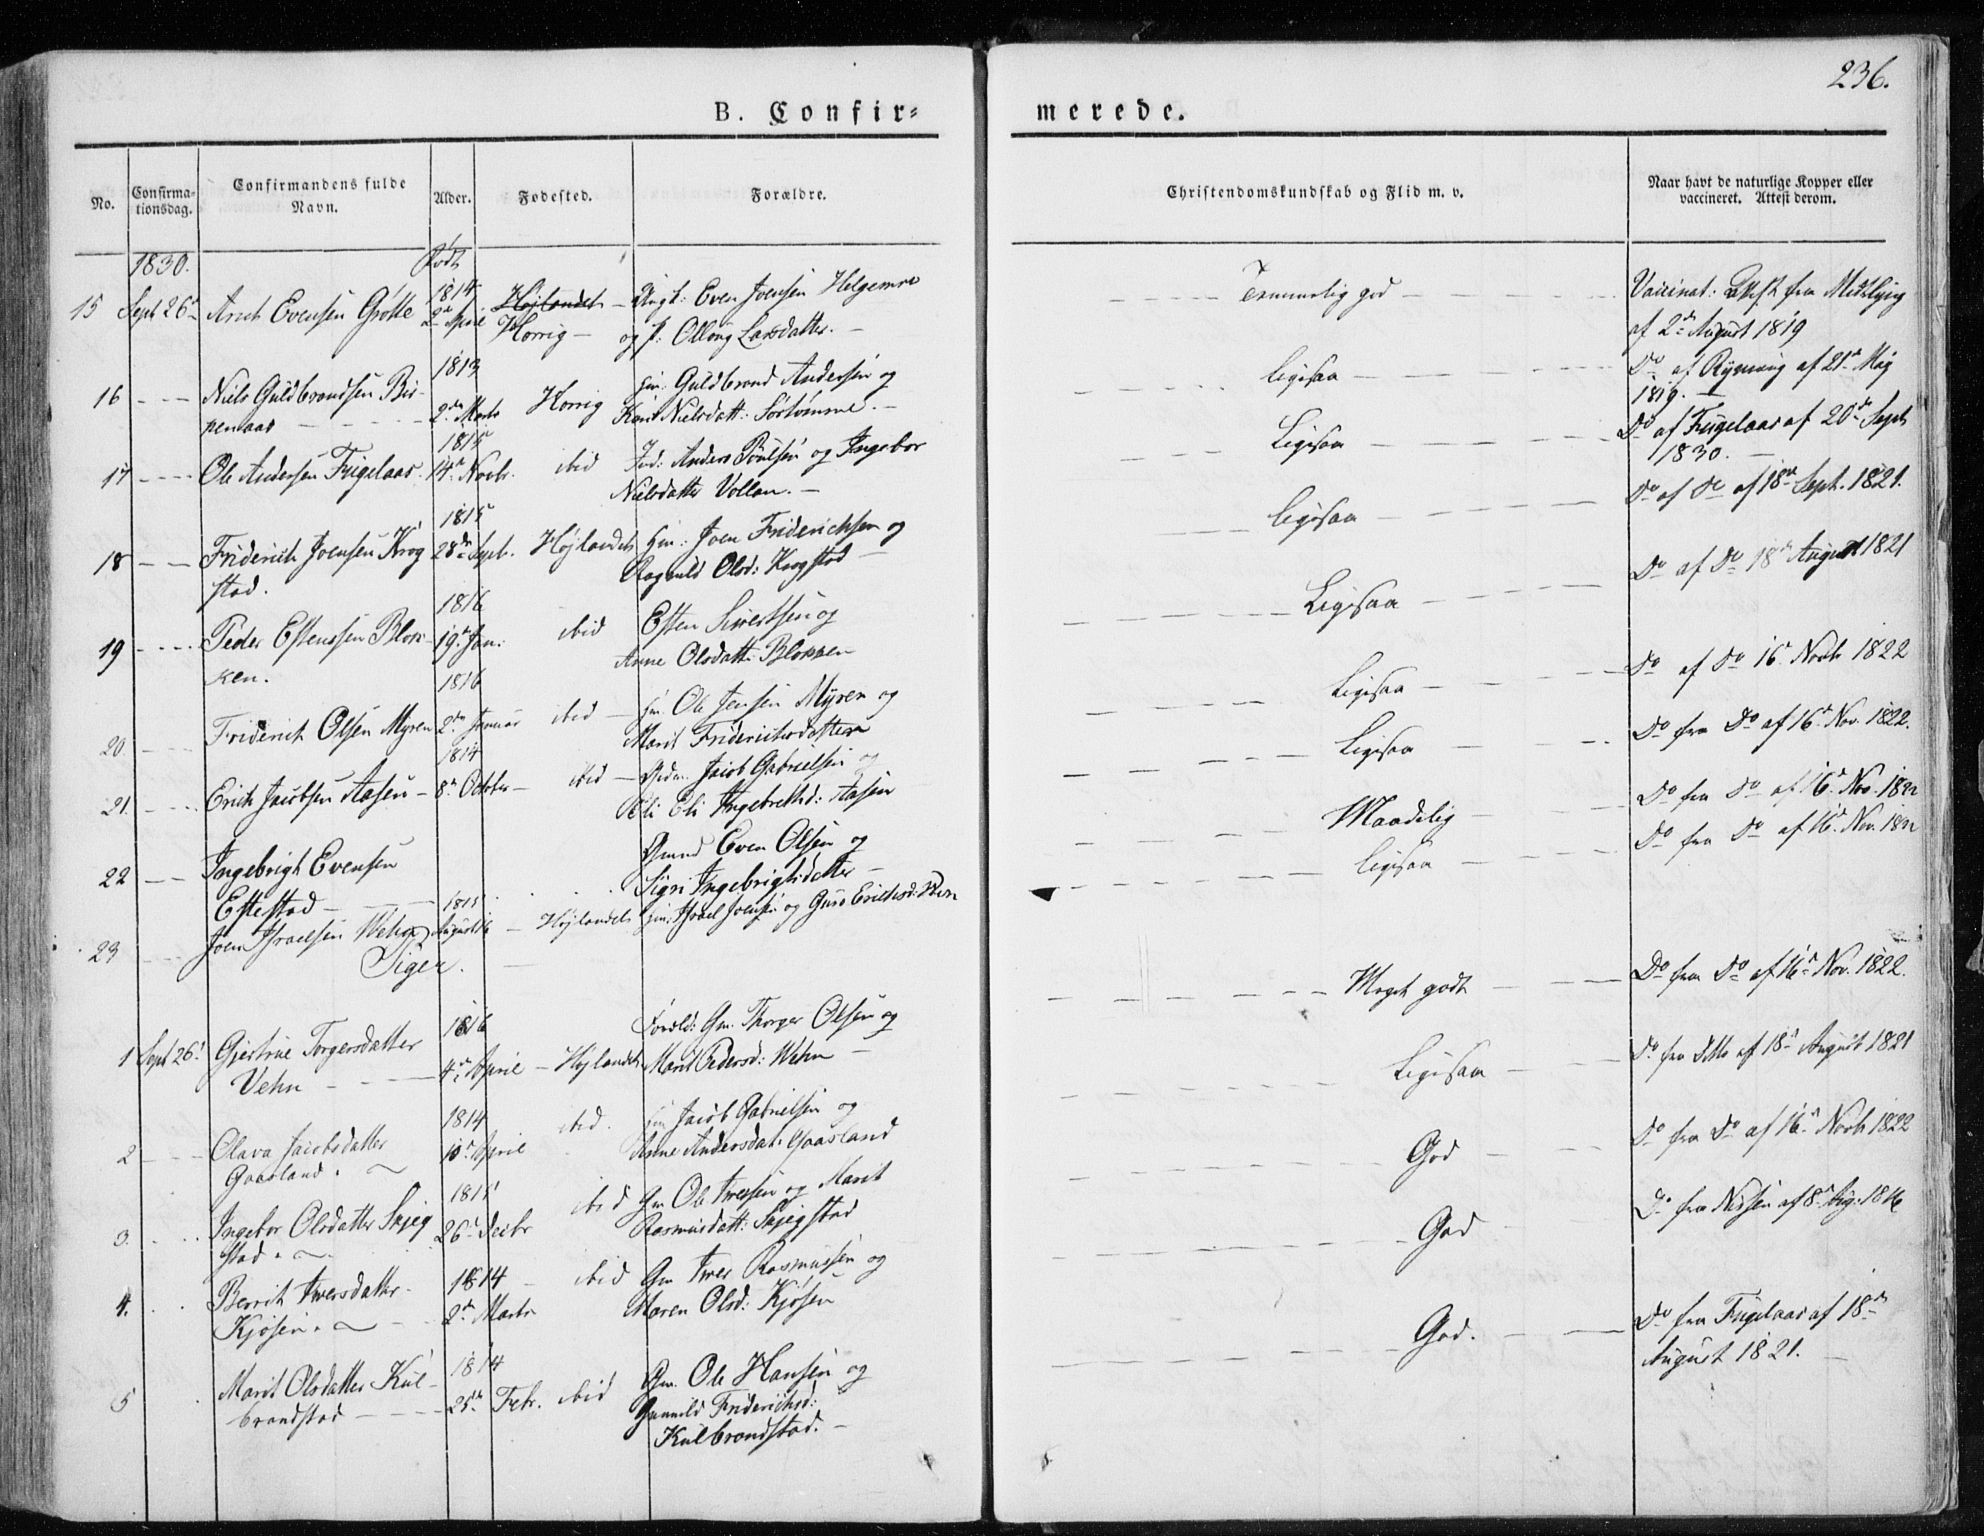 236.
B. Confir=
merede.
No.
Confirma-
tionsdag.
Confirmandens fulde
Navn.
Alder.
Fødested.
Forældre.
Christendomskundskab og Flid m. v.
Naar havt de naturlige Kopper eller
vaccineret. Attest derom.
1830.
Født
15 Sept 26d Arnt Evensen Grøtte 1814 2de April Høilandet Horrig Ungk: Even Joensen Helgemoe
og p: Ollong Larsdatter.
Temmelig god
Vaccinat: Attest fra Midtbyig
af 2de August 1819
16 Niels Guldbrandsen Bis-
penaas 1813 2den Marts Horrig Gm: Guldbrand Andersen og
Karit Nielsdatt: Sørtømme.
ligesaa
Do af Rynning af 21de Maj
1819.
17 Ole Andersen Fugelaas 1815 14de Novbr. ibid Ind: Anders Poulsen og Ingebor
Nielsdatter Vollan.
Ligesaa
Do af Fugelaas af 20de Sept
1830.
18 Friderich Joensen Krog
stad. 1815 28de Septr. Højlandet Gm: Joen Friderichsen og
Ragnild Olsd: Krogstad
ligesaa
Do af Do af 18de Sept. 1821.
19 Peder Estensen Blok-
ken. 1816 19de Jan: ibid Esten Sivertsen og
Anne Olsdatt: Blokken
Ligesaa
Do af Do 18de August 1821
20 Friderich Olsen Myren 1816 2den Januar ibid Gm: Ole Jensen Myren og
Marit Friderichsdatter
Ligesaa
Do af Do 16de Novb 1822
21. Erich Jacobsen Aasen 1814 8de October ibid Jacob Gabrielsen og
Eli Ingebrethsd: Aasen
Ligesaa
Do fra Do af 16de Nov. 1822.
22 Ingebrigt Evensen
Estestad Even Olsen og
Sigri Ingebrigtsdatter
Maadelig
Do fra Do af 16de Nov. 1822
23 Joen Israelsen Wehn 1815 August 16 Højlandet Gm: Israel Joensen og Guro Erichsd: Wen
ligesaa
Do fra Do af 16de Nov. 1822
Piger.
1 Sept 26d Gjertrue Torgersdatter
Vehn 1816 4de April Højlandet Foræld: Gm. Thorger Olsen og
Marit Pedersd: Wehn
Meget godt
Do fra Do af 16de Nov. 1822.
2 Olava Jacobsdatter
Gaasland. 1814 10de April ibid. Gm Jacob Gabrielsen og
Anne Andersdat: Gaasland
Ligesaa
Do fra ditto af 18de August 1821
3. Ingebor Olsdatter Skjeg
stad. 1815 26de Decbr ibid Gm Ole Iversen og Marit
Rasmusdatt: Skjegstad
God
Do fra Do af 16de Novb 1822
4. Berrit Iversdatter
Kjøsen. 1814 2den Marts ibid Gm Iver Rasmussen og
Maren Olsd: Kjøsen
God
Do fra Nissen af 8de Aug. 1816
5 Marit Olsdatter Kul-
brandstad 1814 25de Febr. ibid Gm. Ole Hansen og
Gunnild Friderichsd:
Kulbrandstad.
God.
Do fra Fugelaas af 18de
August 1821.